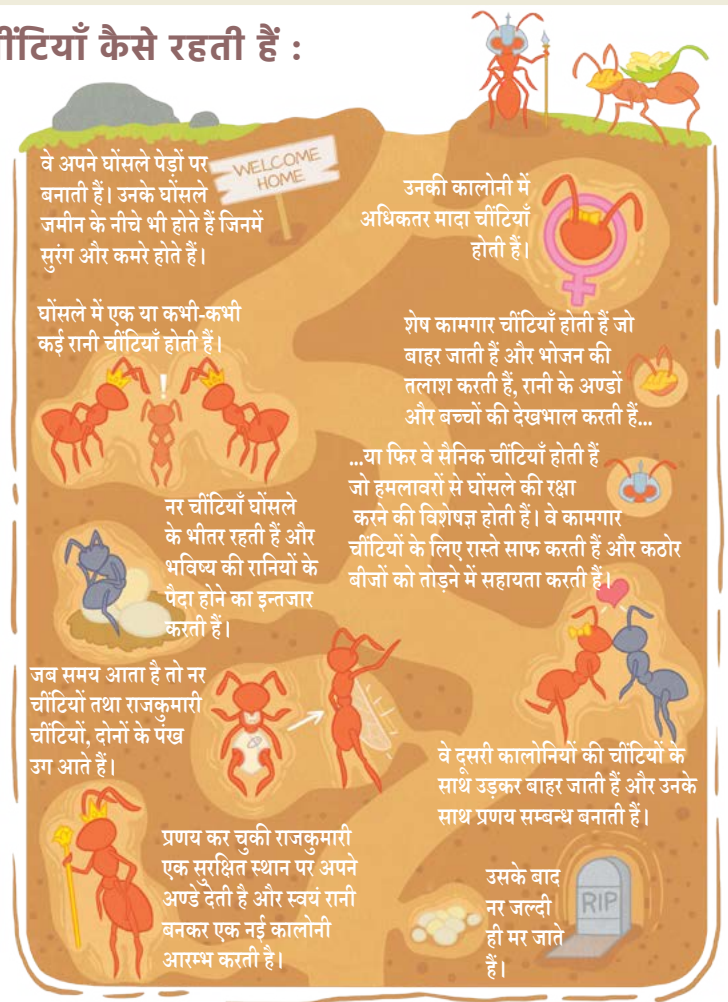 चींटियाँ कैसे रहती हैं :
वे अपने घोंसले पेड़ों पर
बनाती हैं। उनके घोंसले
जमीन के नीचे भी होते हैं जिनमें
सुरंग और कमरे होते हैं।
WELCOME
HOME
उनकी कालोनी में
अधिकतर मादा चींटियाँ
होती हैं।
घोंसले में एक या कभी-कभी
कई रानी चींटियाँ होती हैं।
!
शेष कामगार चींटियाँ होती हैं जो
बाहर जाती हैं और भोजन की
तलाश करती हैं, रानी के अण्डों
और बच्चों की देखभाल करती हैं...
...या फिर वे सैनिक चींटियाँ होती हैं
जो हमलावरों से घोंसले की रक्षा
करने की विशेषज्ञ होती हैं। वे कामगार
चींटियों के लिए रास्ते साफ करती हैं और कठोर
बीजों को तोड़ने में सहायता करती हैं।
नर चींटियाँ घोंसले
के भीतर रहती हैं और
भविष्य की रानियों के
पैदा होने का इन्तजार
करती हैं।
जब समय आता है तो नर
चींटियों तथा राजकुमारी
चींटियों, दोनों के पंख
उग आते हैं।
वे दूसरी कालोनियों की चींटियों के
साथ उड़कर बाहर जाती हैं और उनके
साथ प्रणय सम्बन्ध बनाती हैं।
प्रणय कर चुकी राजकुमारी
एक सुरक्षित स्थान पर अपने
अण्डे देती है और स्वयं रानी
बनकर एक नई कालोनी
आरम्भ करती है।
उसके बाद
नर जल्दी
ही मर जाते
हैं।
RIP